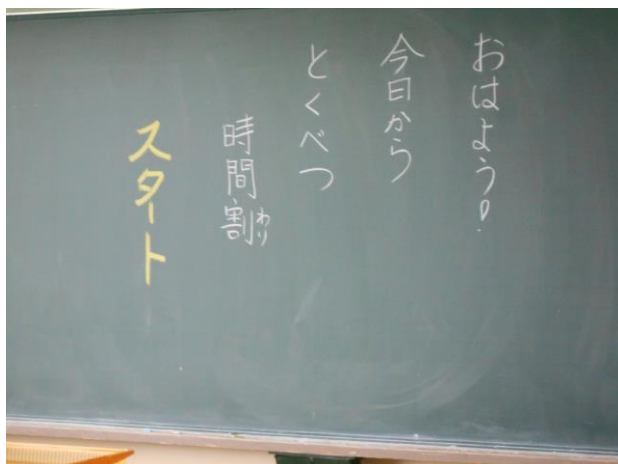 おはよう!
今日から
とくべつ
時間割わり
スタート